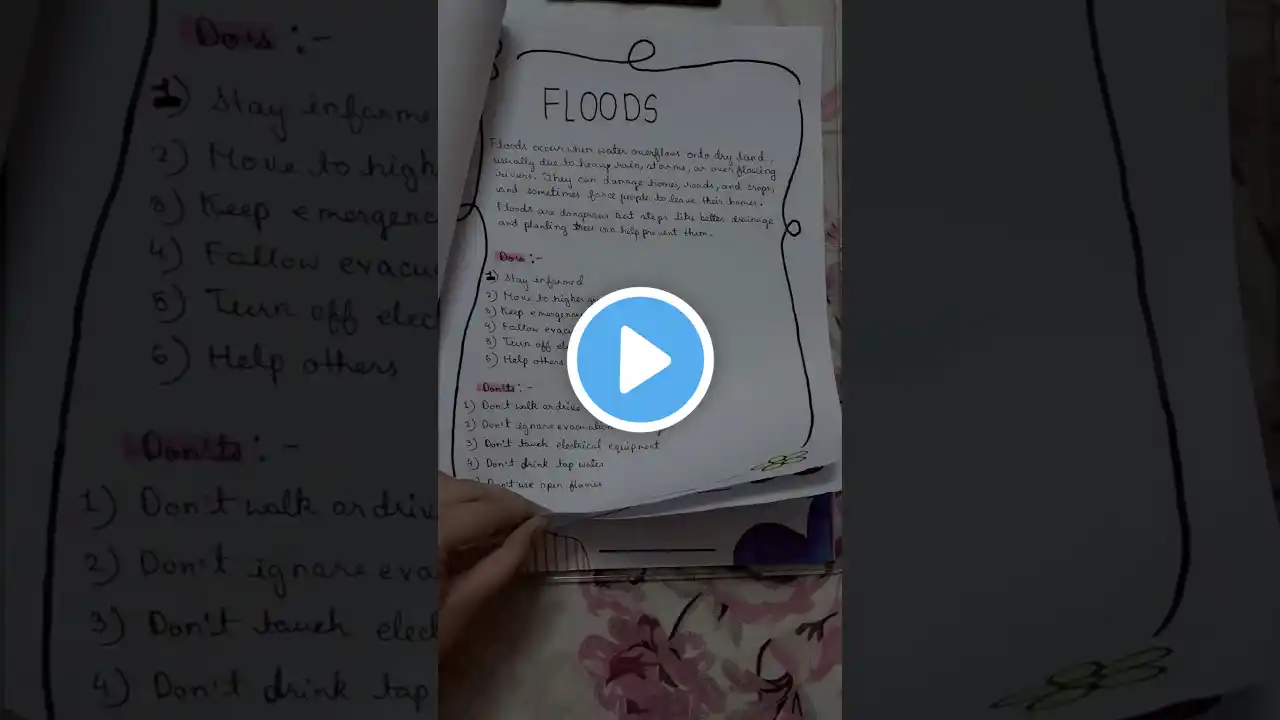 FLOODS
Floods occur when water overflows onto dry land,
usually due to heavy rain, storms, or overflowing
rivers. They can damage homes, roads, and crops,
and sometimes force people to leave their homes.
Floods are dangerous but steps like better drainage
and planting trees can help prevent them.
Do's :-
1) Stay informed
2) Move to higher
3) Keep emergency
4) Follow
5) Turn off
6) Help others
Don'ts :-
1) Don't walk or drive
2) Don't ignore evacuation
3) Don't touch electrical equipment
4) Don't drink tap water
Don't use open flames